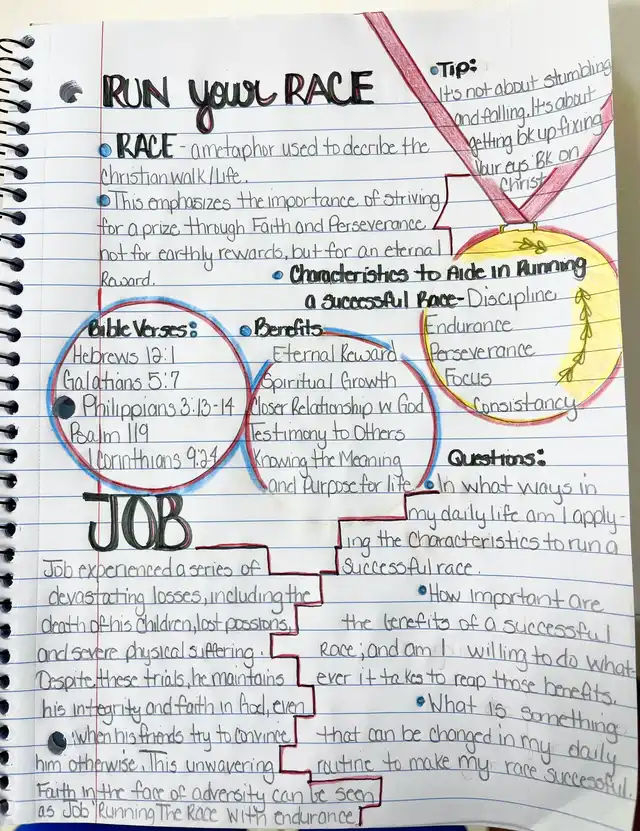 RUN your RACE
• RACE - a metaphor used to decribe the
christian walk/life.
• This emphasizes the importance of striving
for a prize through Faith and Perseverance
not for earthly rewards, but for an eternal
Reward.
• Tip:
It's not about stumbling
and falling. It's about
getting bk up fixing
your eys Bk on
Christ
• Characteristics to Aide in Running
a successful Race - Discipline
Endurance
Perseverance
Focus
Consistancy
Bible Verses:
Hebrews 12:1
Galatians 5:7
Philippians 3:13-14
Psalm 119
1 Corinthians 9:24
• Benefits
Eternal Reward
Spiritual Growth
Closer Relationship w God
Testimony to Others
Knowing the Meaning
and Purpose for life
JOB
Job experienced a series of
devastating losses, including the
death of his children, lost possions,
and severe physical suffering.
Despite these trials, he maintains
his integrity and faith in God, even
when his friends try to convince
him otherwise. This unwavering
Faith in the face of adversity can be seen
as Job "Running The Race with endurance.
Questions:
• In what ways in
my daily life am I apply-
ing the characteristics to run a
successful race.
• How important are
the benefits of a successful
Race; and am I willing to do what-
ever it takes to reap those benefits.
• What is something
that can be changed in my daily
routine to make my race successful.